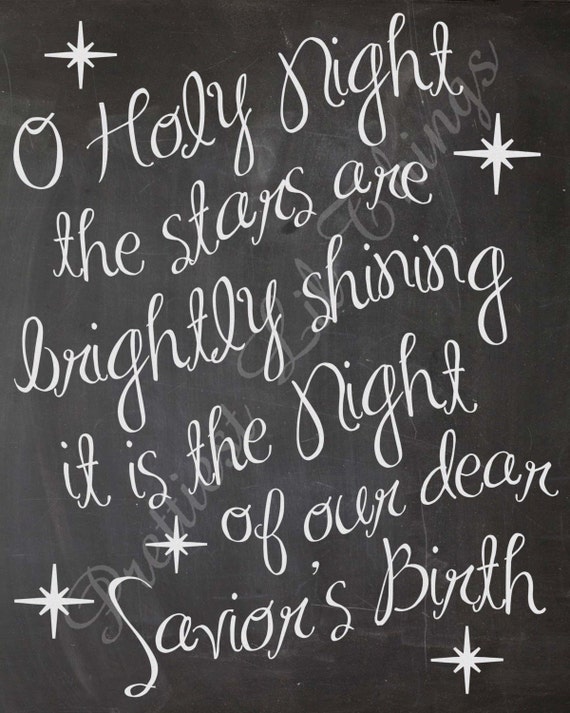 O Holy Night
the stars are
brightly shining
it is the Night
of our dear
Savior's Birth
Prettiest Lil Things